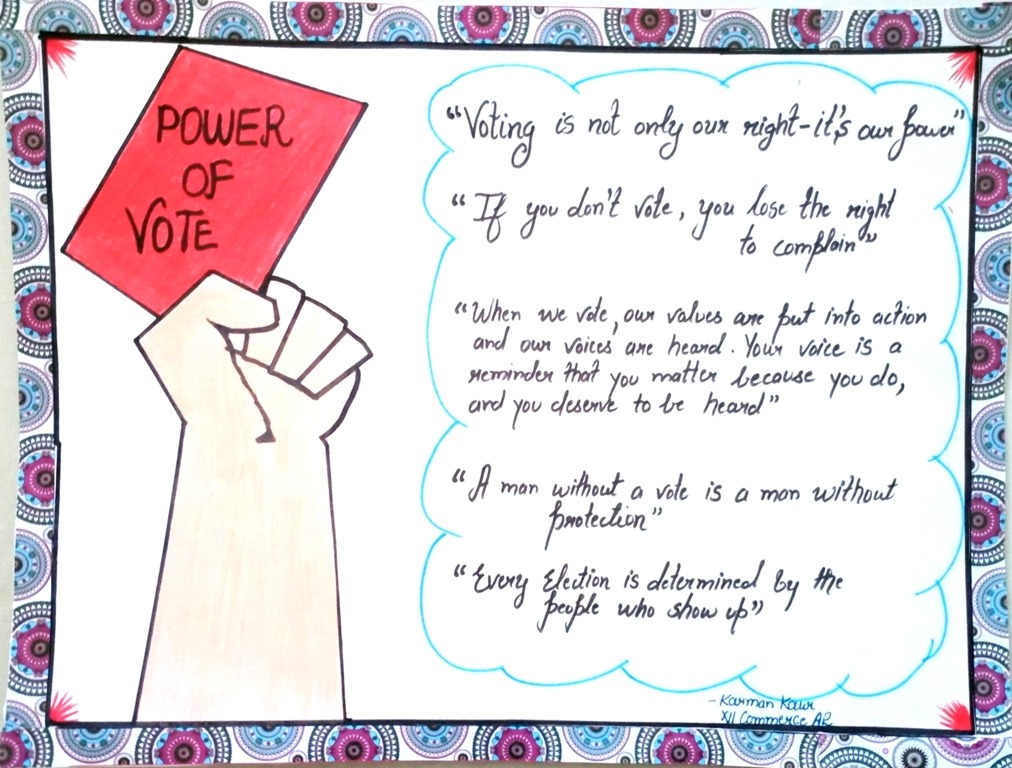 POWER
OF
VOTE
"Voting is not only our right-it's our power"
"If you don't vote, you lose the right
to complain"
"When we vote, our values are put into action
and our voices are heard. Your voice is a
reminder that you matter because you do,
and you deserve to be heard"
"A man without a vote is a man without
protection"
"Every Election is determined by the
people who show up"
- Karman Kaur
XII Commerce A2